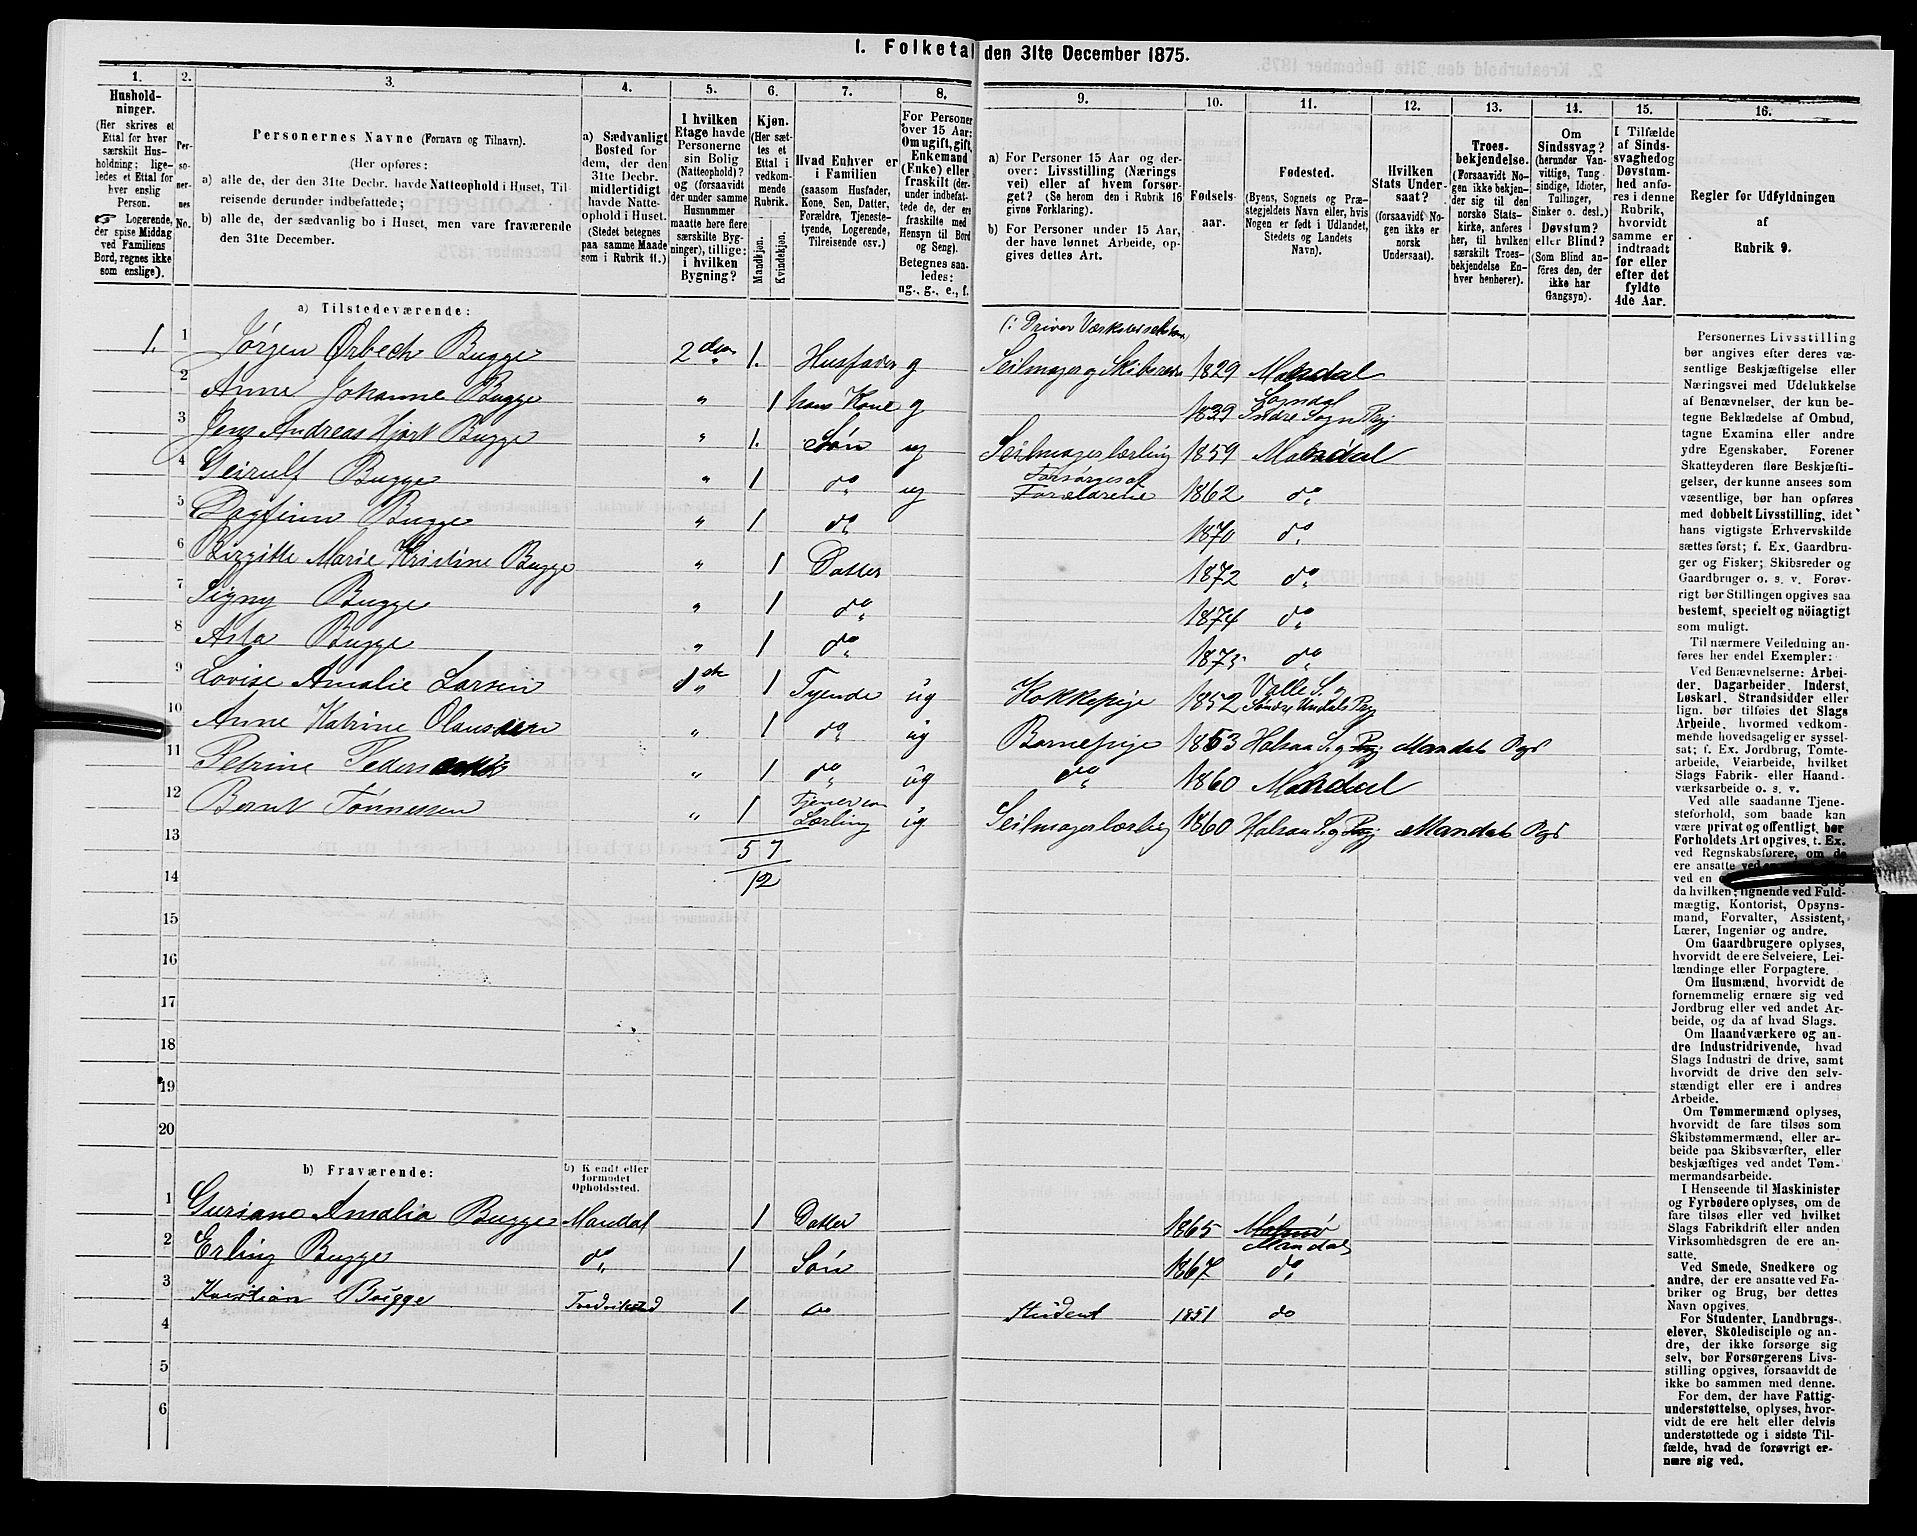 1. Folketal den 31te December 1875.
1. 2. 3. 4. 5. 6. 7. 8. 9. 10. 11. 12. 13. 14. 15. 16.
Hushold-
ninger.
(Her skrives et
Ettal for hver
særskilt Hus-
holdning; lige-
ledes et Ettal for
hver enslig
Person.
Logerende,
der spise Middag
ved Familiens
Bord, regnes ikke
som enslige).
Per-
so-
ner-
nes
No.
Personernes Navne (Fornavn og Tilnavn).
(Her opføres:
a) alle de, der den 31te Decbr. havde Natteophold i Huset, Til-
reisende derunder indbefattede;
b) alle de, der sædvanlig bo i Huset, men vare fraværende
den 31te December.
a) Sædvanligt
Bosted for
dem, der den
31te Decbr.
midlertidigt
havde Natte-
ophold i Huset.
(Stedet betegnes
paa samme Maade
som i Rubrik 11.)
I hvilken
Etage havde
Personerne
sin Bolig
(Natteophold)?
og (forsaavidt
der under samme
Husnummer
maatte høre flere
særskilte Byg-
ninger), tillige:
i hvilken
Bygning?
Kjøn.
(Her sæt-
tes et
Ettal i
vedkom-
mende
Rubrik.
Mandkjøn.
Kvindekjøn.
Hvad Enhver er
i Familien
(saasom Husfader,
Kone, Søn, Datter,
Forældre, Tjeneste-
tyende, Logerende,
Tilreisende osv.)
For Personer
over 15 Aar:
Om ugift, gift,
Enkemand
(Enke) eller
fraskilt (der-
under indbefat-
tede de, der ere
fraskilte med
Hensyn til Bord
og Seng).
Betegnes saa-
ledes:
ug., g., e., f.
a) For Personer 15 Aar og der-
over: Livsstilling (Nærings
vei) eller af hvem forsør-
get? (Se herom den i Rubrik 16
givne Forklaring).
b) For Personer under 15 Aar,
der have lønnet Arbeide, op-
gives dettes Art.
Fødsels-
aar.
Fødested.
(Byens, Sognets og Præ-
stegjeldets Navn eller, hvis
Nogen er født i Udlandet,
Stedets og Landets
Navn).
Hvilken
Stats Under-
saat?
(forsaavidt No-
gen ikke er
norsk
Undersaat).
Troes-
bekjendelse.
(Forsaavidt No-
gen ikke bekjen-
der sig til den
norske Stats-
kirke, anføres
her, til hvilken
særskilt Troes-
bekjendelse En-
hver henhører).
Om
Sindssvag?
(herunder Van-
vittige, Tung
sindige, Idioter,
Tullinger,
Sinker o. desl.)
Døvstum?
eller Blind?
(Som Blind an-
føres den, der
ikke har
Gangsyn).
I Tilfælde
af Sinds-
svaghed og
Døvstum-
hed anfø-
res i denne
Rubrik,
hvorvidt
samme er
indtraadt
før eller
efter det
fyldte
4de Aar.
Regler for Udfyldningen
af
Rubrik 9.
a) Tilstedeværende:
1 1 Jørgen Ørbech Bugge 2den 1. Husfader g (: Driver Værksted Seilmager og Skibsreder 1829 Mandal
2 Anne Johanne Bugge " 1 hans Kone g 1839 Sogndal Indre Sogn Prgj
3 Jens Andreas Hjort Bugge " 1. Søn ug Seilmagerlærling 1859 Mandal
4 Geirulf Bugge " 1 do ug Forsørges af Forældrene 1862 do
5 Dagfinn Bugge " 1 do 1870 do
6 Birgitte Marie Kristine Bugge " 1 Datter 1872 do
7 Signy Bugge " 1 do 1874 do
8 Asta Bugge " 1 do 1875 do
9 Lovise Amalie Larsen 1ste 1 Tyende ug Kokkepige 1852 Valle S. g Søndre Undals Prgj
10 Anne Katrine Olausdren " 1 do ug Barnepige 1853 Halsaa S. g Prgj Mandals Pgd
11 Petrine Peders " 1 do ug do 1860 Mandal
12 Bernt Tønnessen " 1 Tjener om Lærling ug Seilmagerlærling 1860 Halsaa S. g Prgj Mandals Pgd
13 5 7
14 12
15
16
17
18
19
20
b) Fraværende: b) Kjendt eller
formodet
Opholdssted.
1 Guriane Amalia Bugge Mandal 1 Datter 1865 Mandal
2 Erling Bugge do 1 Søn 1867 do
3 Kristian Bugge Fredrikstad 1 do Student 1851 do
4
5
6
Personernes Livsstilling
bør angives efter deres væ-
sentlige Beskjæftigelse eller
Næringsvei med Udelukkelse
af Benævnelser, der kun be-
tegne Beklædelse af Ombud,
tagne Examina eller andre
ydre Egenskaber. Forener
Skatteyderen flere Beskjæfti-
gelser, der kunne ansees som
væsentlige, bør han opføres
med dobbelt Livsstilling, idet
hans vigtigste Erhvervskilde
sættes først; f. Ex. Gaardbru-
ger og Fisker; Skibsreder og
Gaardbruger o. s. v. Forøv-
rigt bør Stillingen opgives saa
bestemt, specielt og nøiagtigt
som muligt.
Til nærmere Veiledning an-
føres her endel Exempler:
Ved Benævnelserne: Arbei-
der, Dagarbeider, Inderst,
Løskarl, Strandsidder eller
lign. bør tilføies det Slags
Arbeide, hvormed vedkom-
mende hovedsagelig er syssel-
sat; f. Ex. Jordbrug, Tomte-
arbeide, Veiarbeide, hvilket
Slags Fabrik- eller Haand-
værksarbeide o. s. v.
Ved alle saadanne Tjene-
steforhold, som baade kan
være privat og offentligt, bør
Forholdets Art opgives, t. Ex.
ved Regnskabsførere, om de
ere ansatte ved
ved en
da hvilken; lignende ved Fuld-
mægtig, Kontorist, Opsyns-
mand, Forvalter, Assistent,
Lærer, Ingeniør og andre.
Om Gaardbrugere oplyses,
hvorvidt de ere Selveiere, Lei-
lændinge eller Forpagtere.
Om Husmænd, hvorvidt de
fornemmelig ernære sig ved
Jordbrug eller ved andet Ar-
beide, og da af hvad Slags.
Om Haandværkere og an-
dre Industridrivende, hvad
Slags Industri de drive, samt
hvorvidt de drive den selv-
stændigt eller ere i andres
Arbeide.
Om Tømmermænd oplyses,
hvorvidt de fare tilsøs som
Skibstømmermænd, eller ar-
beide paa Skibsværfter, eller
beskjæftiges ved andet Tøm-
mermandsarbeide.
I Henseende til Maskinister
og Fyrbødere oplyses, om de
fare tilsøs eller ved hvilket
Slags Fabrikdrift eller anden
Virksomhedsgren de ere an-
satte.
Ved Smede, Snedkere og
andre, der ere ansatte ved Fa-
briker og Brug, bør dettes
Navn opgives.
For Studenter, Landbrugs-
elever, Skoledisciple og an-
dre, der ikke forsørge sig
selv, bør Forsørgerens Livs-
stilling opgives, forsaavidt de
ikke bo sammen med denne.
For dem, der have Fattig-
understøttelse, oplyses, hvor-
vidt de ere helt eller delvis
understøttede og i sidste Til-
fælde, hvad de forøvrigt er-
nære sig ved.